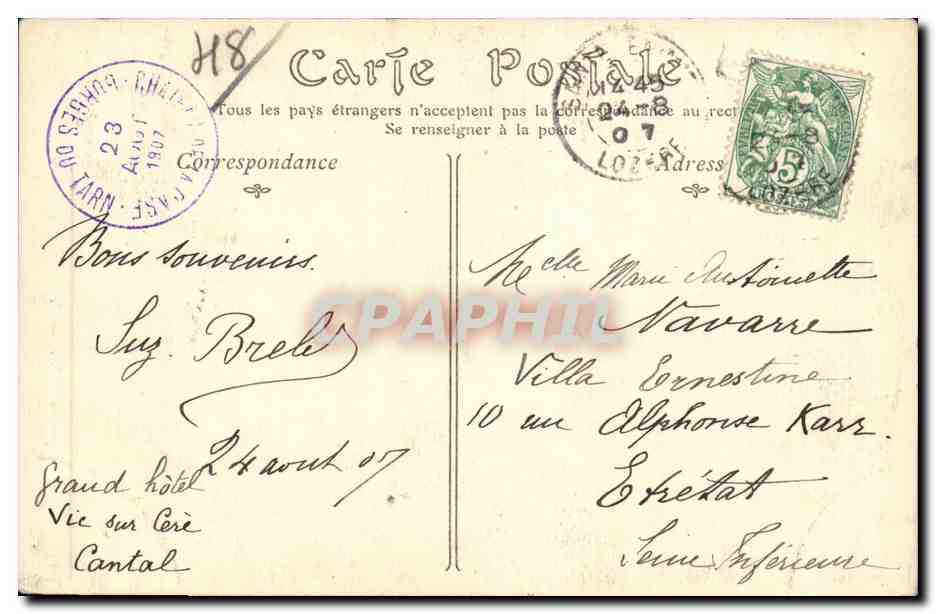 48
Carte Postale
Tous les pays étrangers n'acceptent pas la correspondance au rect
Se renseigner à la poste
Correspondance
Adress
GORGES DU TARN
23
AOUT
1907
12 45
24 -8
07
LOZERE
5
Bons souvenirs.
Suz. Brelet
24 aout 07
Grand hôtel
Vic sur Cère
Cantal
Melle Marie Antoinette
Navarre
Villa Ernestine
10 rue Alphonse Karr.
Etrétat
Seine Inférieure
CPAPHIL